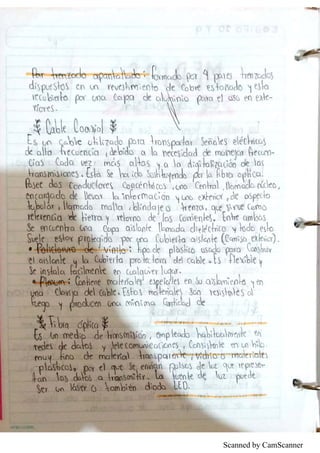 Par trenzado apantallado: Formado por 4 pares trenzados
dispuestos en un revestimiento de cobre estañado y esta
recubierto por una capa de aluminio para el uso en exte-
riores.
Cable Coaxial
Es un cable utilizado para transportar señales eléctricas
de alta frecuencia, debido a la necesidad de manejar frecuen-
cias cada vez más altas y a la digitalización de las
transmisiones. Esta se ha ido sustituyendo por la fibra optica.
Posee dos conductores concéntricos, uno central, llamado núcleo,
encargado de llevar la información y uno exterior, de aspecto
tubular, llamado malla, blindaje o trenza, que sirve como
referencia de tierra y retorno de las corrientes. Entre ambos
se encuentra una capa aislante llamada dieléctrico y todo esto
suele estar protegido por una cubierta aislante (camisa exterior).
de Vinilo: tipo de plástico usado para construir
el aislante y la cubierta protectora del cable. Es flexible y
se instala facilmente en cualquier lugar.
Plenum: Contiene materiales especiales en su aislamiento y en
una clavija del cable. Estos materiales son resistentes al
fuego y producen una mínima cantidad de
Fibra óptica
Es un medio de transmisión, empleado habitualmente en
redes de datos y telecomunicaciones, consistente en un hilo
muy fino de material transparente, vidrio o materiales
plásticos, por el que se envian pulsos de luz que represen-
tan los datos a transmitir. La fuente de luz puede
ser un láser o también diodo LED.
Scanned by CamScanner